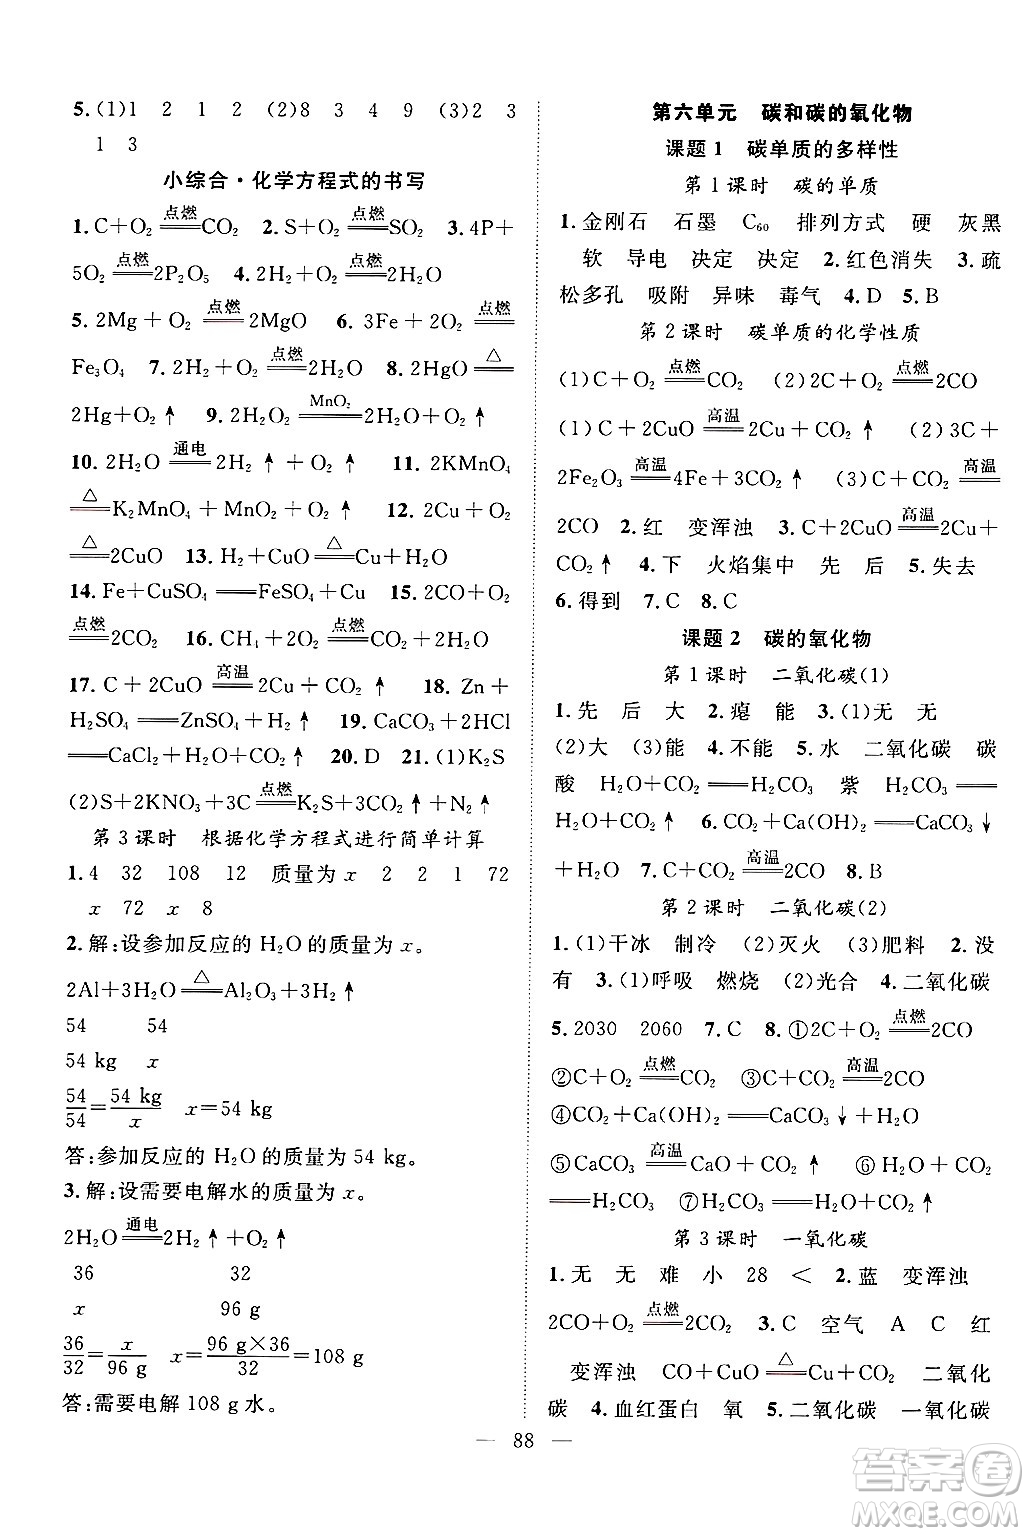 5.(1)1 2 1 2 (2)8 3 4 (3)2 3
1 3
小综合·化学方程式的书写
1.C+O₂ =点燃= CO₂ 2.S+O₂ =点燃= SO₂ 3.4P+
5O₂ =点燃= 2P₂O₅ 4.2H₂+O₂ =点燃= 2H₂O
5.2Mg+O₂ =点燃= 2MgO 6.3Fe+2O₂ =点燃=
Fe₃O₄ 7.2H₂+O₂ =点燃= 2H₂O 8.2HgO =△=
2Hg+O₂↑ 9.2H₂O₂ =MnO₂= 2H₂O+O₂↑
10.2H₂O =通电= 2H₂↑+O₂↑ 11.2KMnO₄
=△= K₂MnO₄+MnO₂+O₂↑ 12.2Cu+O₂
=△= 2CuO 13.H₂+CuO =△= Cu+H₂O
14.Fe+CuSO₄ == FeSO₄+Cu 15.2CO+O₂
=点燃= 2CO₂ 16.CH₄+2O₂ =点燃= CO₂+2H₂O
17.C+2CuO =高温= 2Cu+CO₂↑ 18.Zn+
H₂SO₄ == ZnSO₄+H₂↑ 19.CaCO₃+2HCl
== CaCl₂+H₂O+CO₂↑ 20.D 21.(1)K₂S
(2)S+2KNO₃+3C =点燃= K₂S+3CO₂↑+N₂↑
第3课时 根据化学方程式进行简单计算
1.4 32 108 12 质量为x 2 2 1 72
x 72 x 8
2.解:设参加反应的 H₂O 的质量为 x。
2Al+3H₂O =△= Al₂O₃+3H₂↑
54 54
54 kg x
54/54=54 kg/x x=54 kg
答:参加反应的 H₂O 的质量为 54 kg。
3.解:设需要电解水的质量为 x。
2H₂O =通电= 2H₂↑+O₂↑
36 32
x 96 g
36/32=x/96 g x=96 g×36/32=108 g
答:需要电解 108 g 水。
第六单元 碳和碳的氧化物
课题1 碳单质的多样性
第1课时 碳的单质
1.金刚石 石墨 C₆₀ 排列方式 硬 灰黑
软 导电 决定 决定 2.红色消失 3.疏
松多孔 吸附 异味 毒气 4.D 5.B
第2课时 碳单质的化学性质
(1)C+O₂ =点燃= CO₂ (2)2C+O₂ =点燃= 2CO
(1)C+2CuO =高温= 2Cu+CO₂↑ (2)3C+
2Fe₂O₃ =高温= 4Fe+3CO₂↑ (3)C+CO₂ =高温=
2CO 2.红 变浑浊 3.C+2CuO =高温= 2Cu+
CO₂↑ 4.下 火焰集中 先 后 5.失去
6.得到 7.C 8.C
课题2 碳的氧化物
第1课时 二氧化碳(1)
1.先 后 大 2.瘪 能 3.(1)无 无
(2)大 (3)能 4.不能 5.水 二氧化碳 碳
酸 H₂O+CO₂ == H₂CO₃ 紫 H₂CO₃ ==
H₂O+CO₂↑ 6.CO₂+Ca(OH)₂ == CaCO₃↓
+H₂O 7.C+CO₂ =高温= 2CO 8.B
第2课时 二氧化碳(2)
1.(1)干冰 制冷 (2)灭火 (3)肥料 2.没
有 3.(1)呼吸 燃烧 (2)光合 4.二氧化碳
5.2030 2060 7.C 8.①2C+O₂ =点燃= 2CO
②C+O₂ =点燃= CO₂ ③C+CO₂ =高温= 2CO
④CO₂+Ca(OH)₂ == CaCO₃↓+H₂O
⑤CaCO₃ =高温= CaO+CO₂↑ ⑥H₂O+CO₂
== H₂CO₃ ⑦H₂CO₃ == H₂O+CO₂↑
第3课时 一氧化碳
1.无 无 难 小 28 < 2.蓝 变浑浊
2CO+O₂ =点燃= 2CO₂ 3.C 空气 A C 红
变浑浊 CO+CuO =△= Cu+CO₂ 二氧化
碳 4.血红蛋白 氧 5.二氧化碳 一氧化碳
— 88 —
答案圈
MXQE.COM